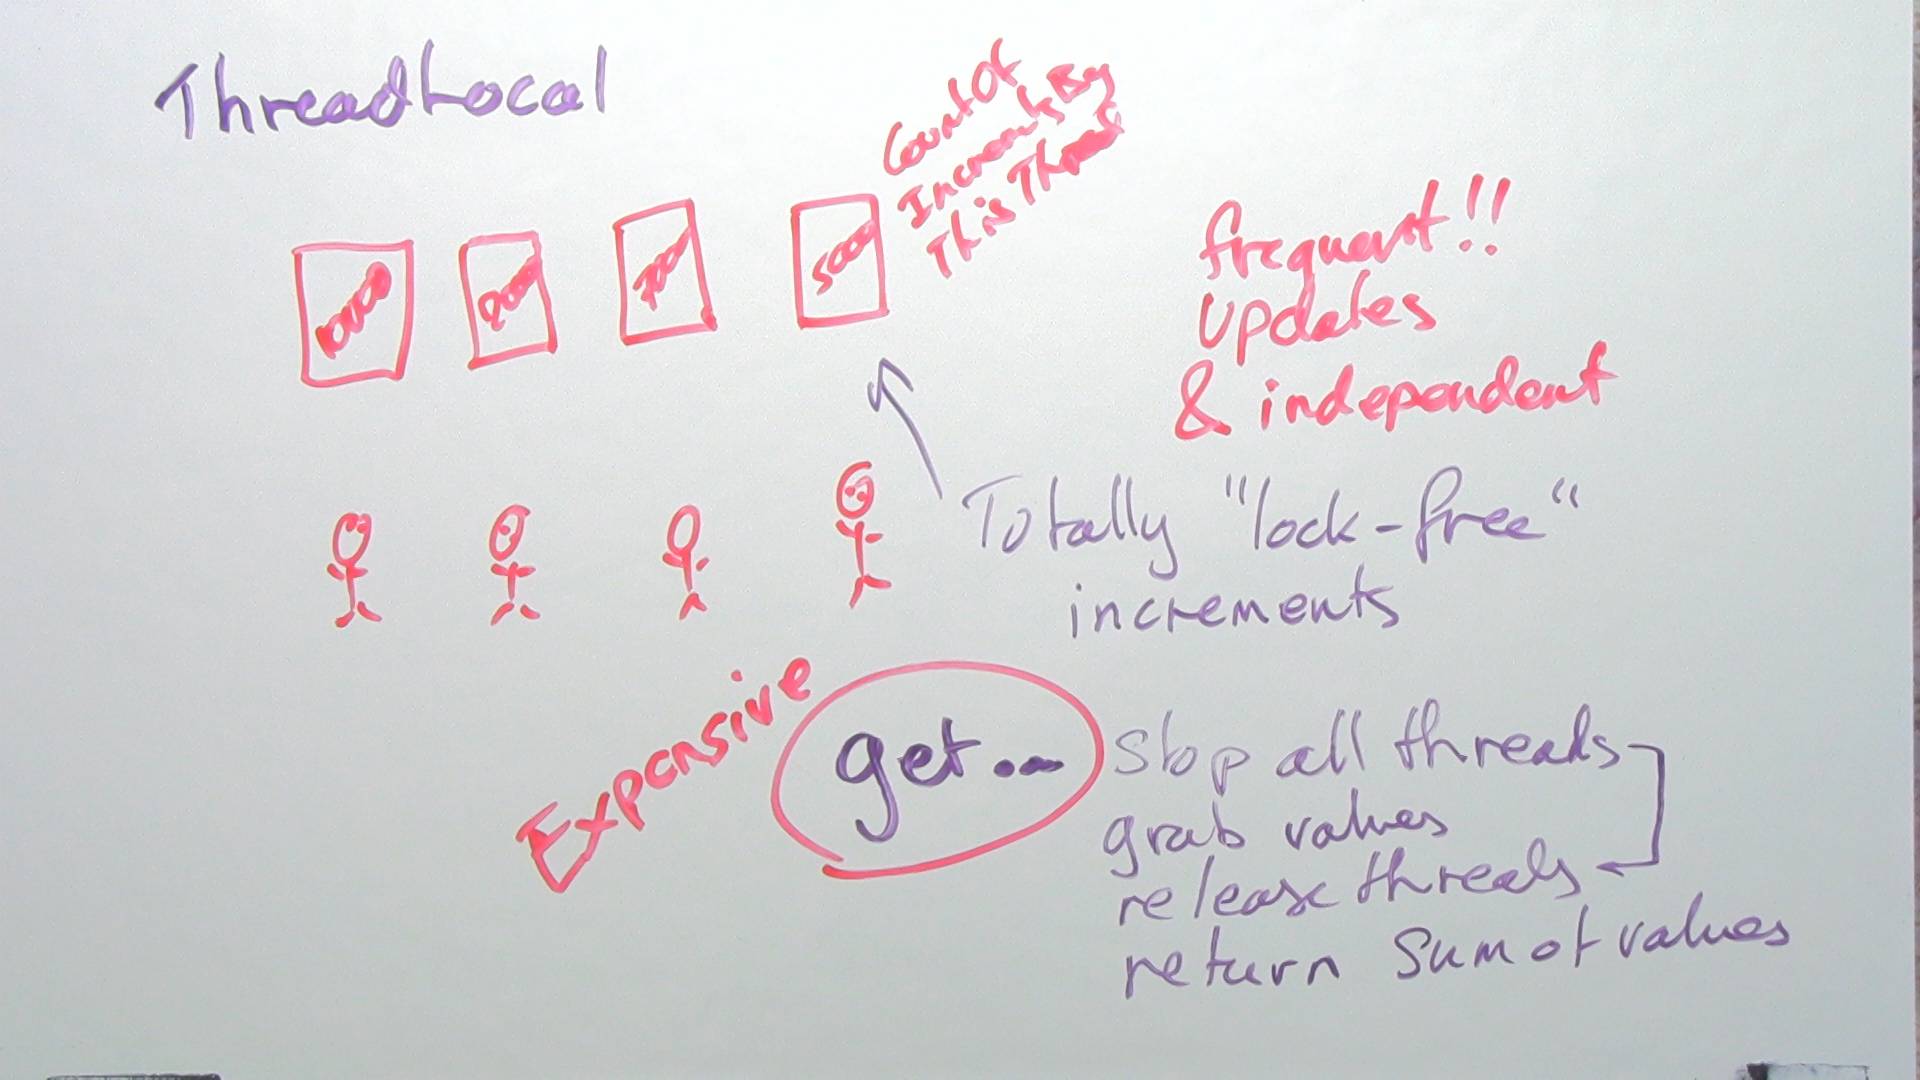 ThreadLocal
CountOf
Increments By
This Thread
10000
9000
7000
5000
frequent!!
updates
& independent
Totally "lock-free"
increments
Expensive
get...
stop all threads
grab values
release threads
return Sum of values